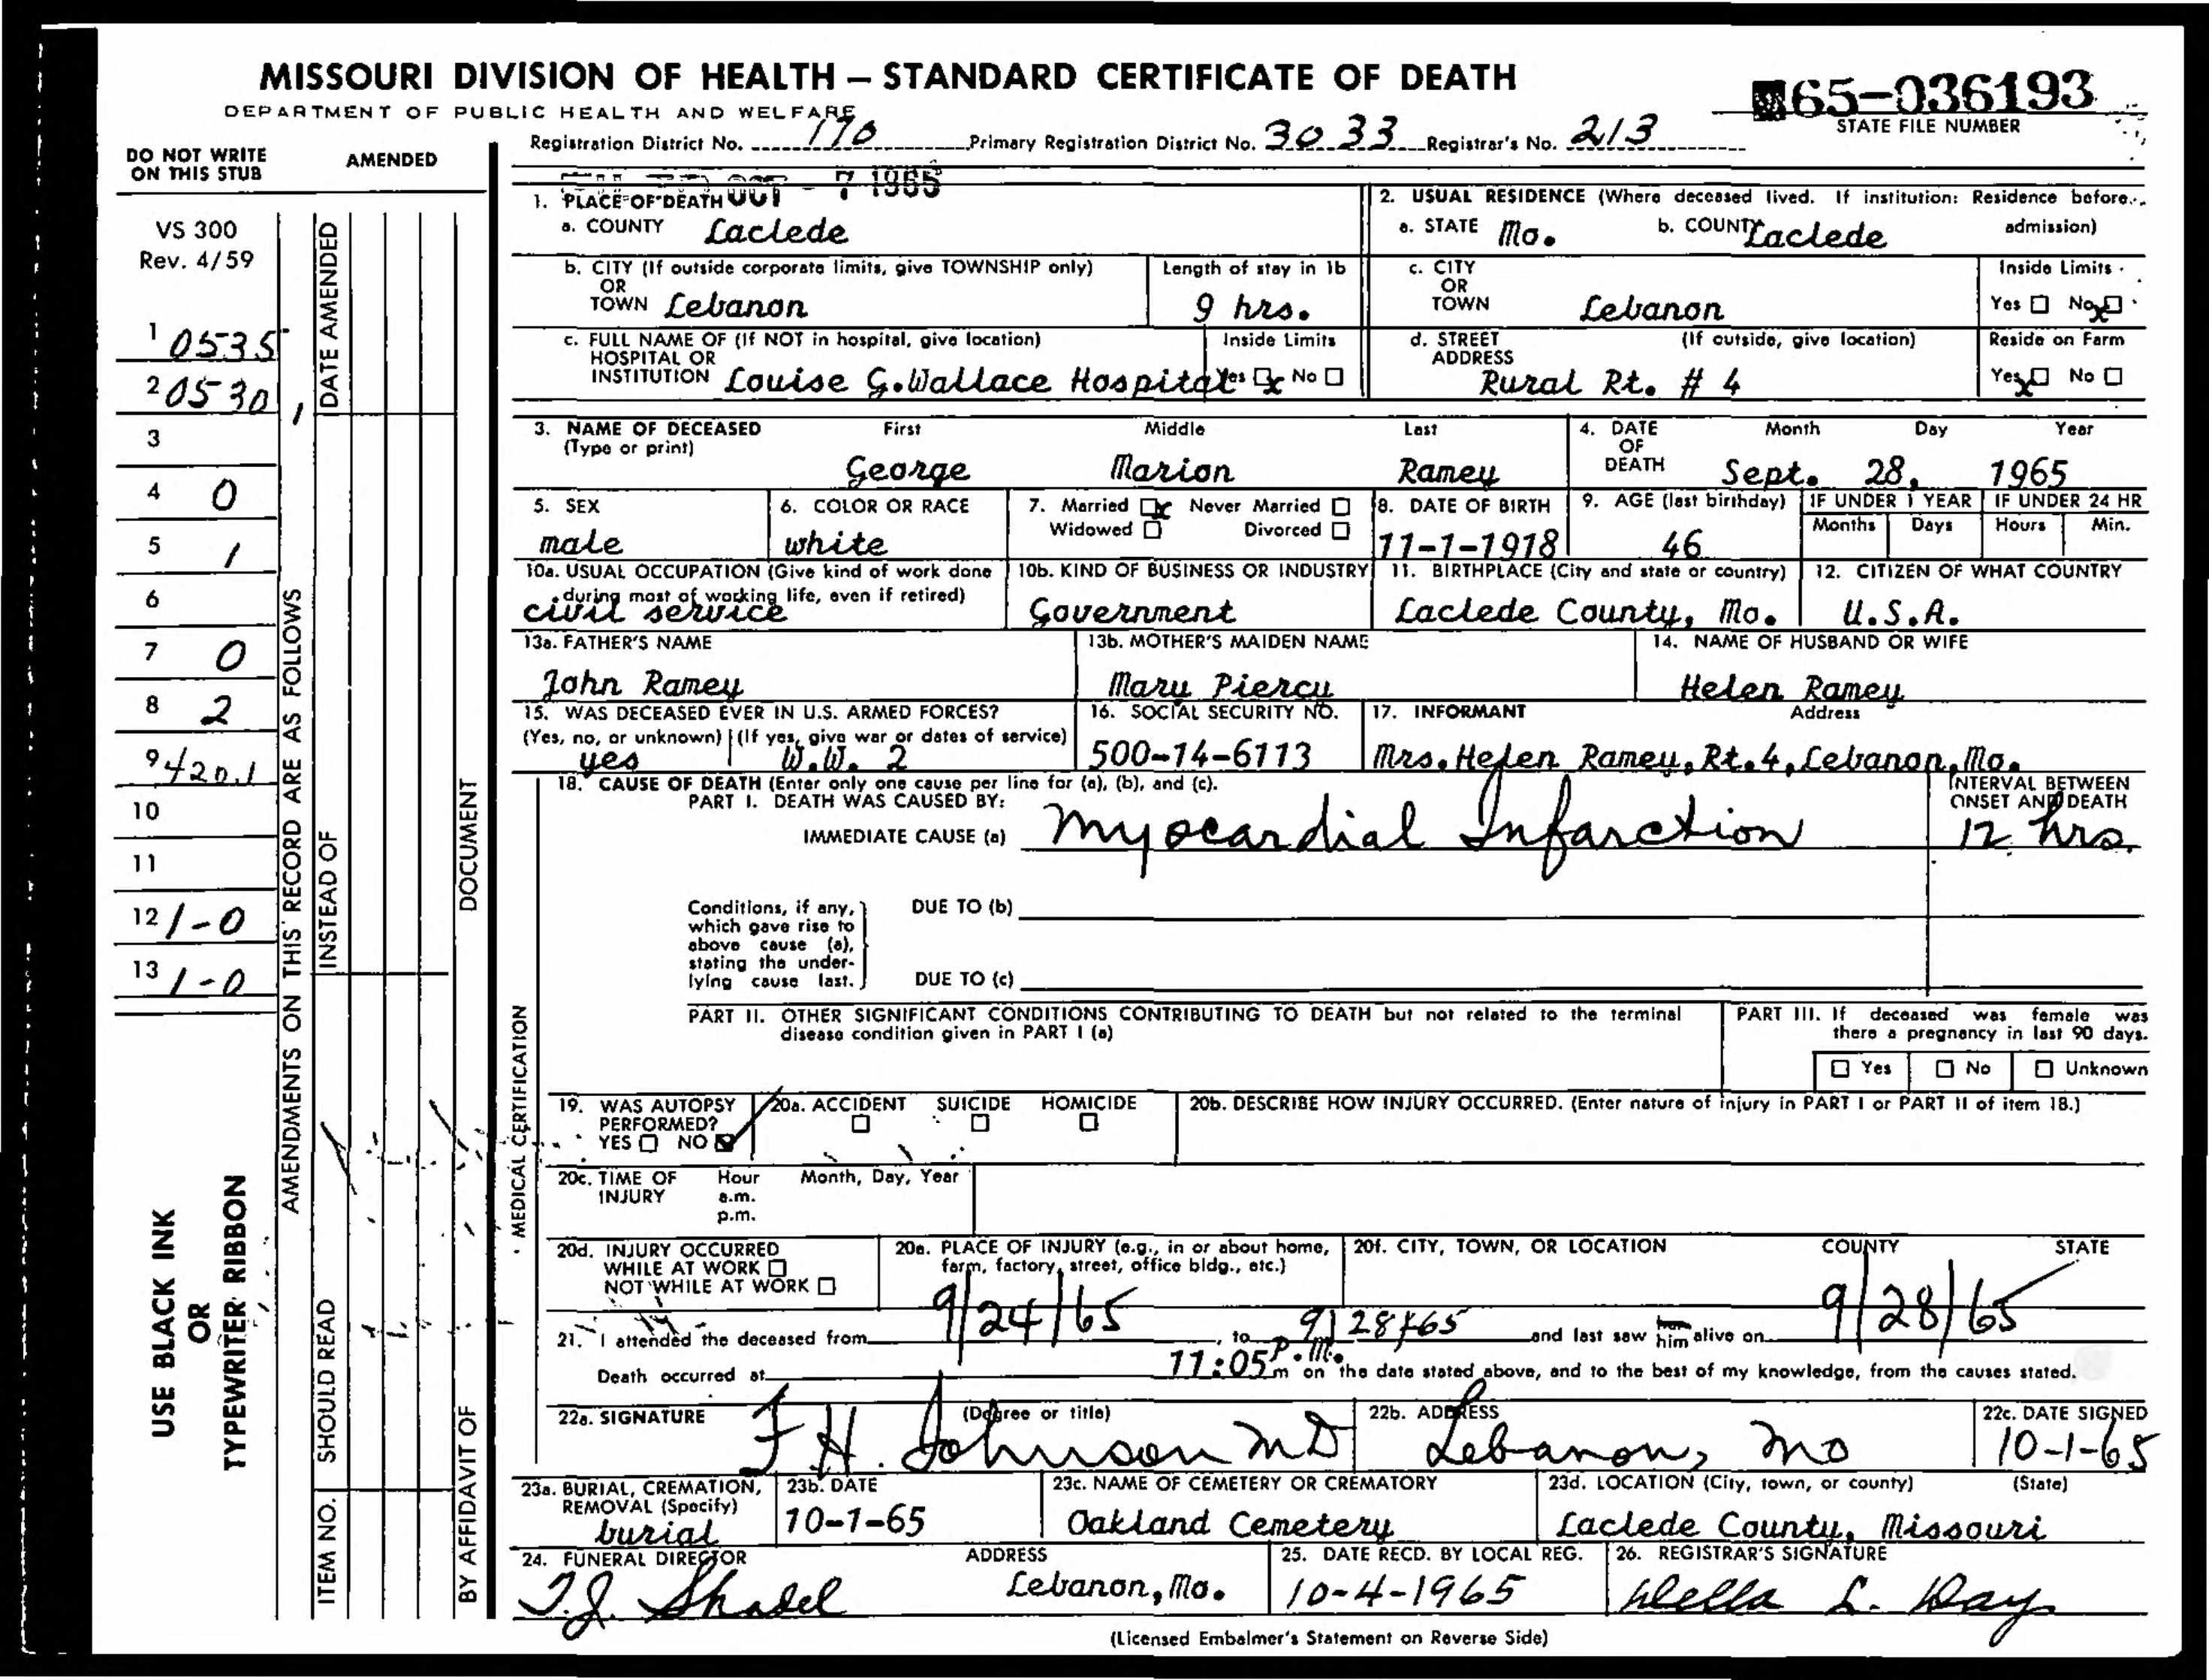 MISSOURI DIVISION OF HEALTH – STANDARD CERTIFICATE OF DEATH
DEPARTMENT OF PUBLIC HEALTH AND WELFARE
65-036193
STATE FILE NUMBER
Registration District No. 170 Primary Registration District No. 3033 Registrar's No. 213
DO NOT WRITE ON THIS STUB
AMENDED
VS 300
Rev. 4/59
1 0535
2 0530
3
4 0
5 1
6
7 0
8 2
9 420.1
10
11
12 1-0
13 1-0
USE BLACK INK
OR
TYPEWRITER RIBBON
AMENDMENTS ON THIS RECORD ARE AS FOLLOWS
DATE AMENDED
INSTEAD OF
SHOULD READ
ITEM NO.
DOCUMENT
BY AFFIDAVIT OF
OCT - 7 1965
1. PLACE OF DEATH
a. COUNTY Laclede
2. USUAL RESIDENCE (Where deceased lived. If institution: Residence before admission)
a. STATE Mo. b. COUNTY Laclede
b. CITY (If outside corporate limits, give TOWNSHIP only)
OR
TOWN Lebanon
Length of stay in 1b
9 hrs.
c. CITY
OR
TOWN Lebanon
Inside Limits
Yes ☐ No ☒
c. FULL NAME OF (If NOT in hospital, give location)
HOSPITAL OR
INSTITUTION Louise G. Wallace Hospital
Inside Limits
Yes ☒ No ☐
d. STREET (If outside, give location)
ADDRESS
Rural Rt. # 4
Reside on Farm
Yes ☒ No ☐
3. NAME OF DECEASED First Middle Last
(Type or print)
George Marion Ramey
4. DATE OF DEATH Month Day Year
Sept. 28, 1965
5. SEX
male
6. COLOR OR RACE
white
7. Married ☒ Never Married ☐
Widowed ☐ Divorced ☐
8. DATE OF BIRTH
11-1-1918
9. AGE (last birthday)
46
IF UNDER 1 YEAR
Months Days
IF UNDER 24 HR
Hours Min.
10a. USUAL OCCUPATION (Give kind of work done
during most of working life, even if retired)
civil service
10b. KIND OF BUSINESS OR INDUSTRY
Government
11. BIRTHPLACE (City and state or country)
Laclede County, Mo.
12. CITIZEN OF WHAT COUNTRY
U.S.A.
13a. FATHER'S NAME
John Ramey
13b. MOTHER'S MAIDEN NAME
Mary Piercy
14. NAME OF HUSBAND OR WIFE
Helen Ramey
15. WAS DECEASED EVER IN U.S. ARMED FORCES?
(Yes, no, or unknown) (If yes, give war or dates of service)
yes W.W. 2
16. SOCIAL SECURITY NO.
500-14-6113
17. INFORMANT Address
Mrs. Helen Ramey, Rt. 4, Lebanon, Mo.
MEDICAL CERTIFICATION
18. CAUSE OF DEATH (Enter only one cause per line for (a), (b), and (c).
PART I. DEATH WAS CAUSED BY:
IMMEDIATE CAUSE (a) Myocardial Infarction
INTERVAL BETWEEN
ONSET AND DEATH
12 hrs.
Conditions, if any,
which gave rise to
above cause (a),
stating the under-
lying cause last.
DUE TO (b)
DUE TO (c)
PART II. OTHER SIGNIFICANT CONDITIONS CONTRIBUTING TO DEATH but not related to the terminal
disease condition given in PART I (a)
PART III. If deceased was female was
there a pregnancy in last 90 days.
☐ Yes ☐ No ☐ Unknown
19. WAS AUTOPSY
PERFORMED?
YES ☐ NO ☒
20a. ACCIDENT SUICIDE HOMICIDE
☐ ☐ ☐
20b. DESCRIBE HOW INJURY OCCURRED. (Enter nature of injury in PART I or PART II of item 18.)
20c. TIME OF INJURY Hour Month, Day, Year
a.m.
p.m.
20d. INJURY OCCURRED
WHILE AT WORK ☐
NOT WHILE AT WORK ☐
20e. PLACE OF INJURY (e.g., in or about home,
farm, factory, street, office bldg., etc.)
20f. CITY, TOWN, OR LOCATION COUNTY STATE
21. I attended the deceased from 9/24/65, to 9/28/65 and last saw her him alive on 9/28/65
Death occurred at 11:05 P.M. m on the date stated above, and to the best of my knowledge, from the causes stated.
22a. SIGNATURE (Degree or title)
F H. Johnson MD
22b. ADDRESS
Lebanon, Mo
22c. DATE SIGNED
10-1-65
23a. BURIAL, CREMATION,
REMOVAL (Specify)
burial
23b. DATE
10-1-65
23c. NAME OF CEMETERY OR CREMATORY
Oakland Cemetery
23d. LOCATION (City, town, or county) (State)
Laclede County, Missouri
24. FUNERAL DIRECTOR ADDRESS
T.J. Shadel Lebanon, Mo.
25. DATE RECD. BY LOCAL REG.
10-4-1965
26. REGISTRAR'S SIGNATURE
Della L. Day
(Licensed Embalmer's Statement on Reverse Side)